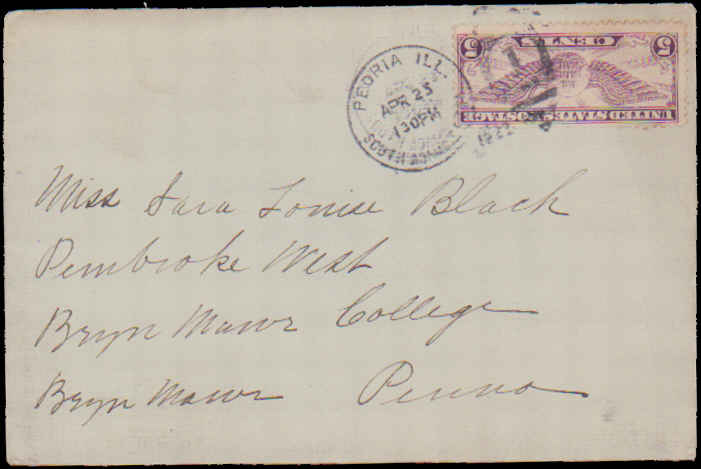 PEORIA ILL.
APR 25
130PM
SOUTH
5 CENTS 5
UNITED STATES POSTAGE
Miss Sara Louise Black
Pembroke West
Bryn Mawr College
Bryn Mawr Penna